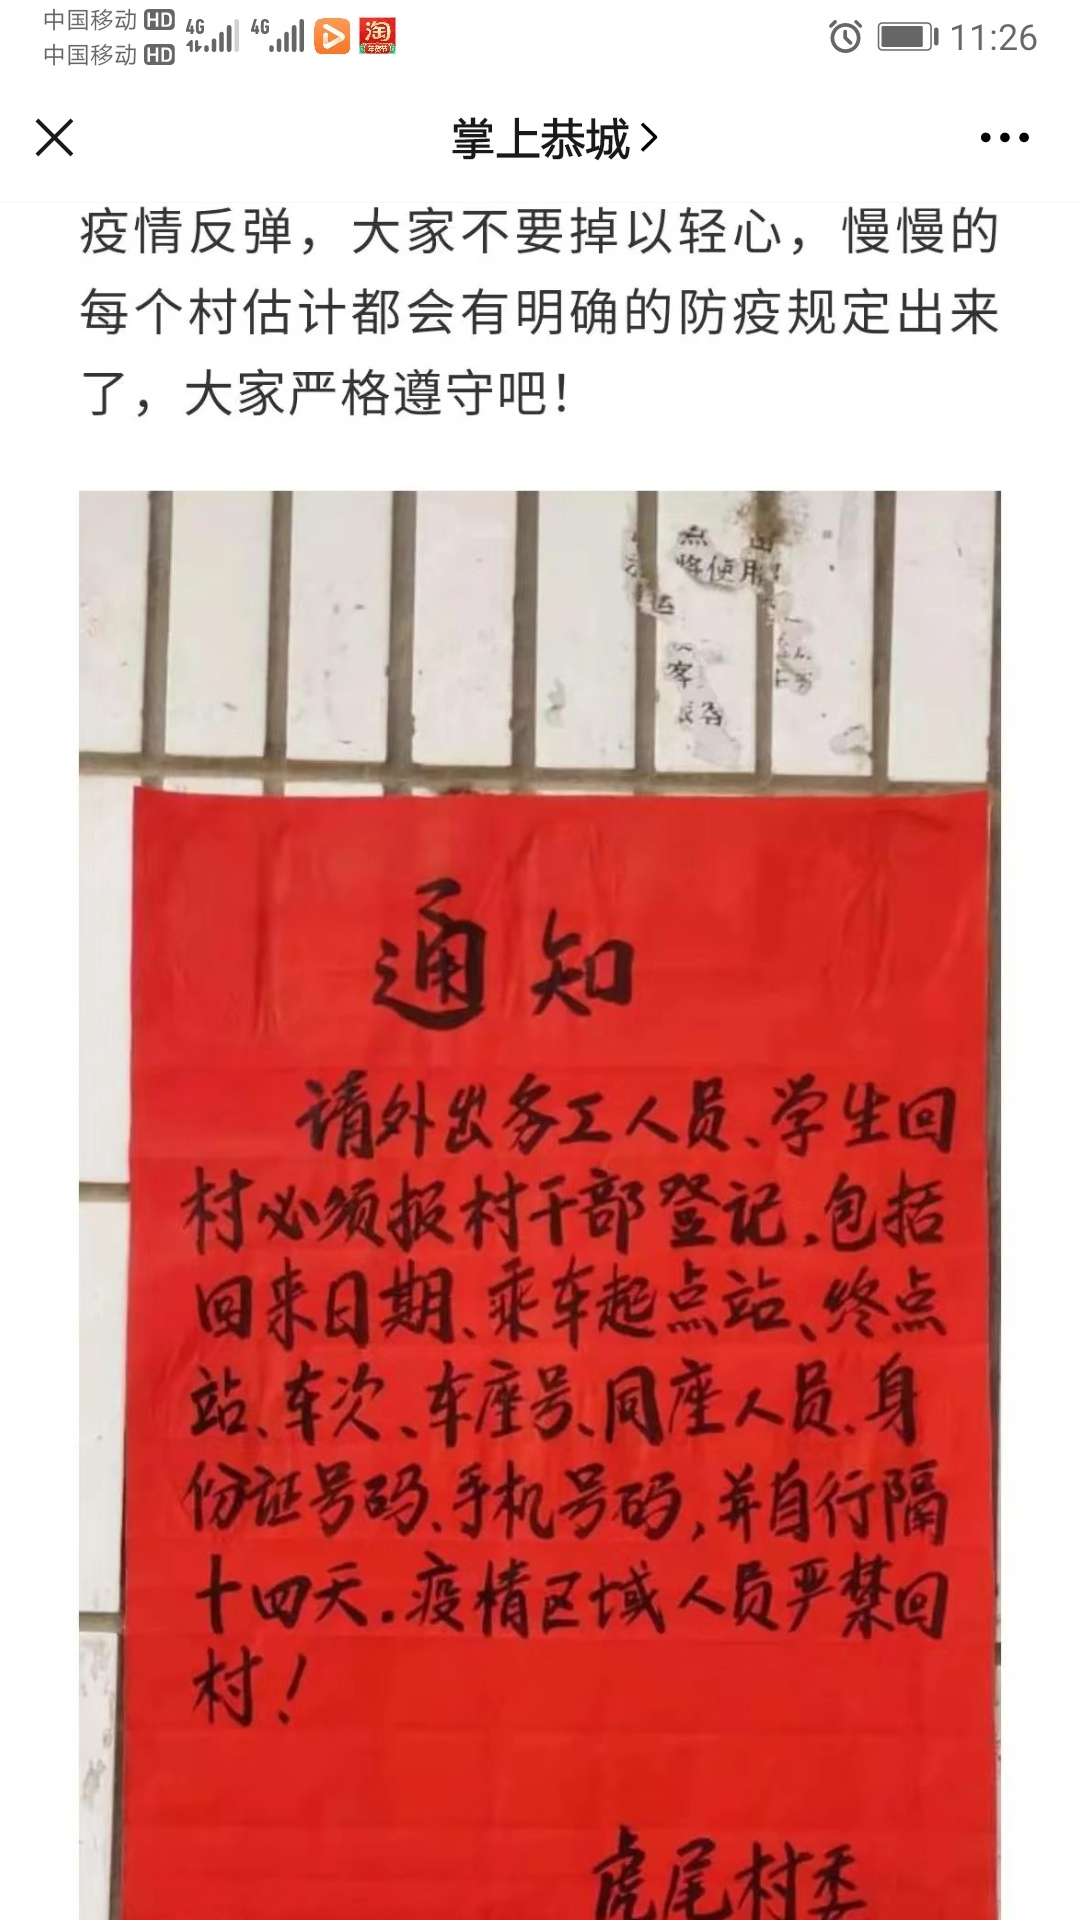 中国移动 HD 4G 4G 11:26
中国移动 HD
掌上恭城
疫情反弹，大家不要掉以轻心，慢慢的
每个村估计都会有明确的防疫规定出来
了，大家严格遵守吧！
点
将使用
客
通知
请外出务工人员、学生回
村必须报村干部登记，包括
回来日期、乘车起点站、终点
站、车次、车座号、同座人员、身
份证号码、手机号码，并自行隔
十四天。疫情区域人员严禁回
村！
虎尾村委